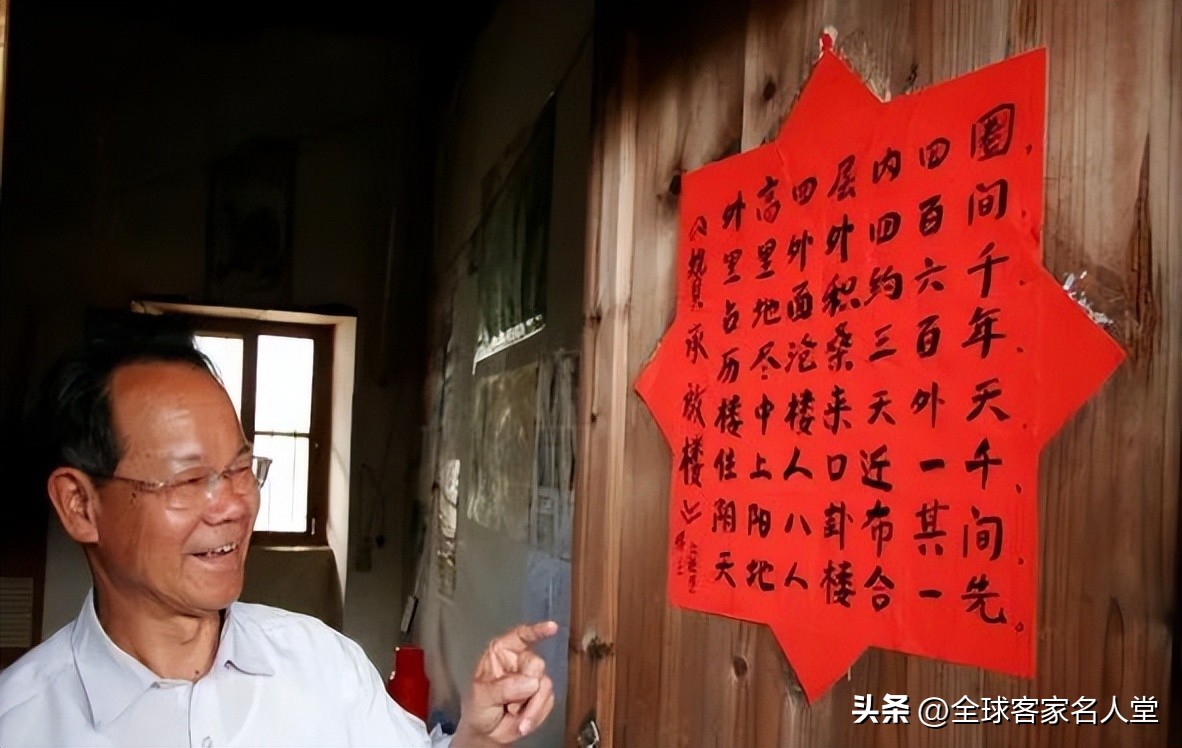 《贊承啟楼》
外高四层内四圈，
里里外外四百间.
占地面积约六千.
历尽沧桑三百年.
楼中楼来天外天
住上人口近一千、
阴阳八卦布其间.
天地人楼合一先。
头条 @全球客家名人堂